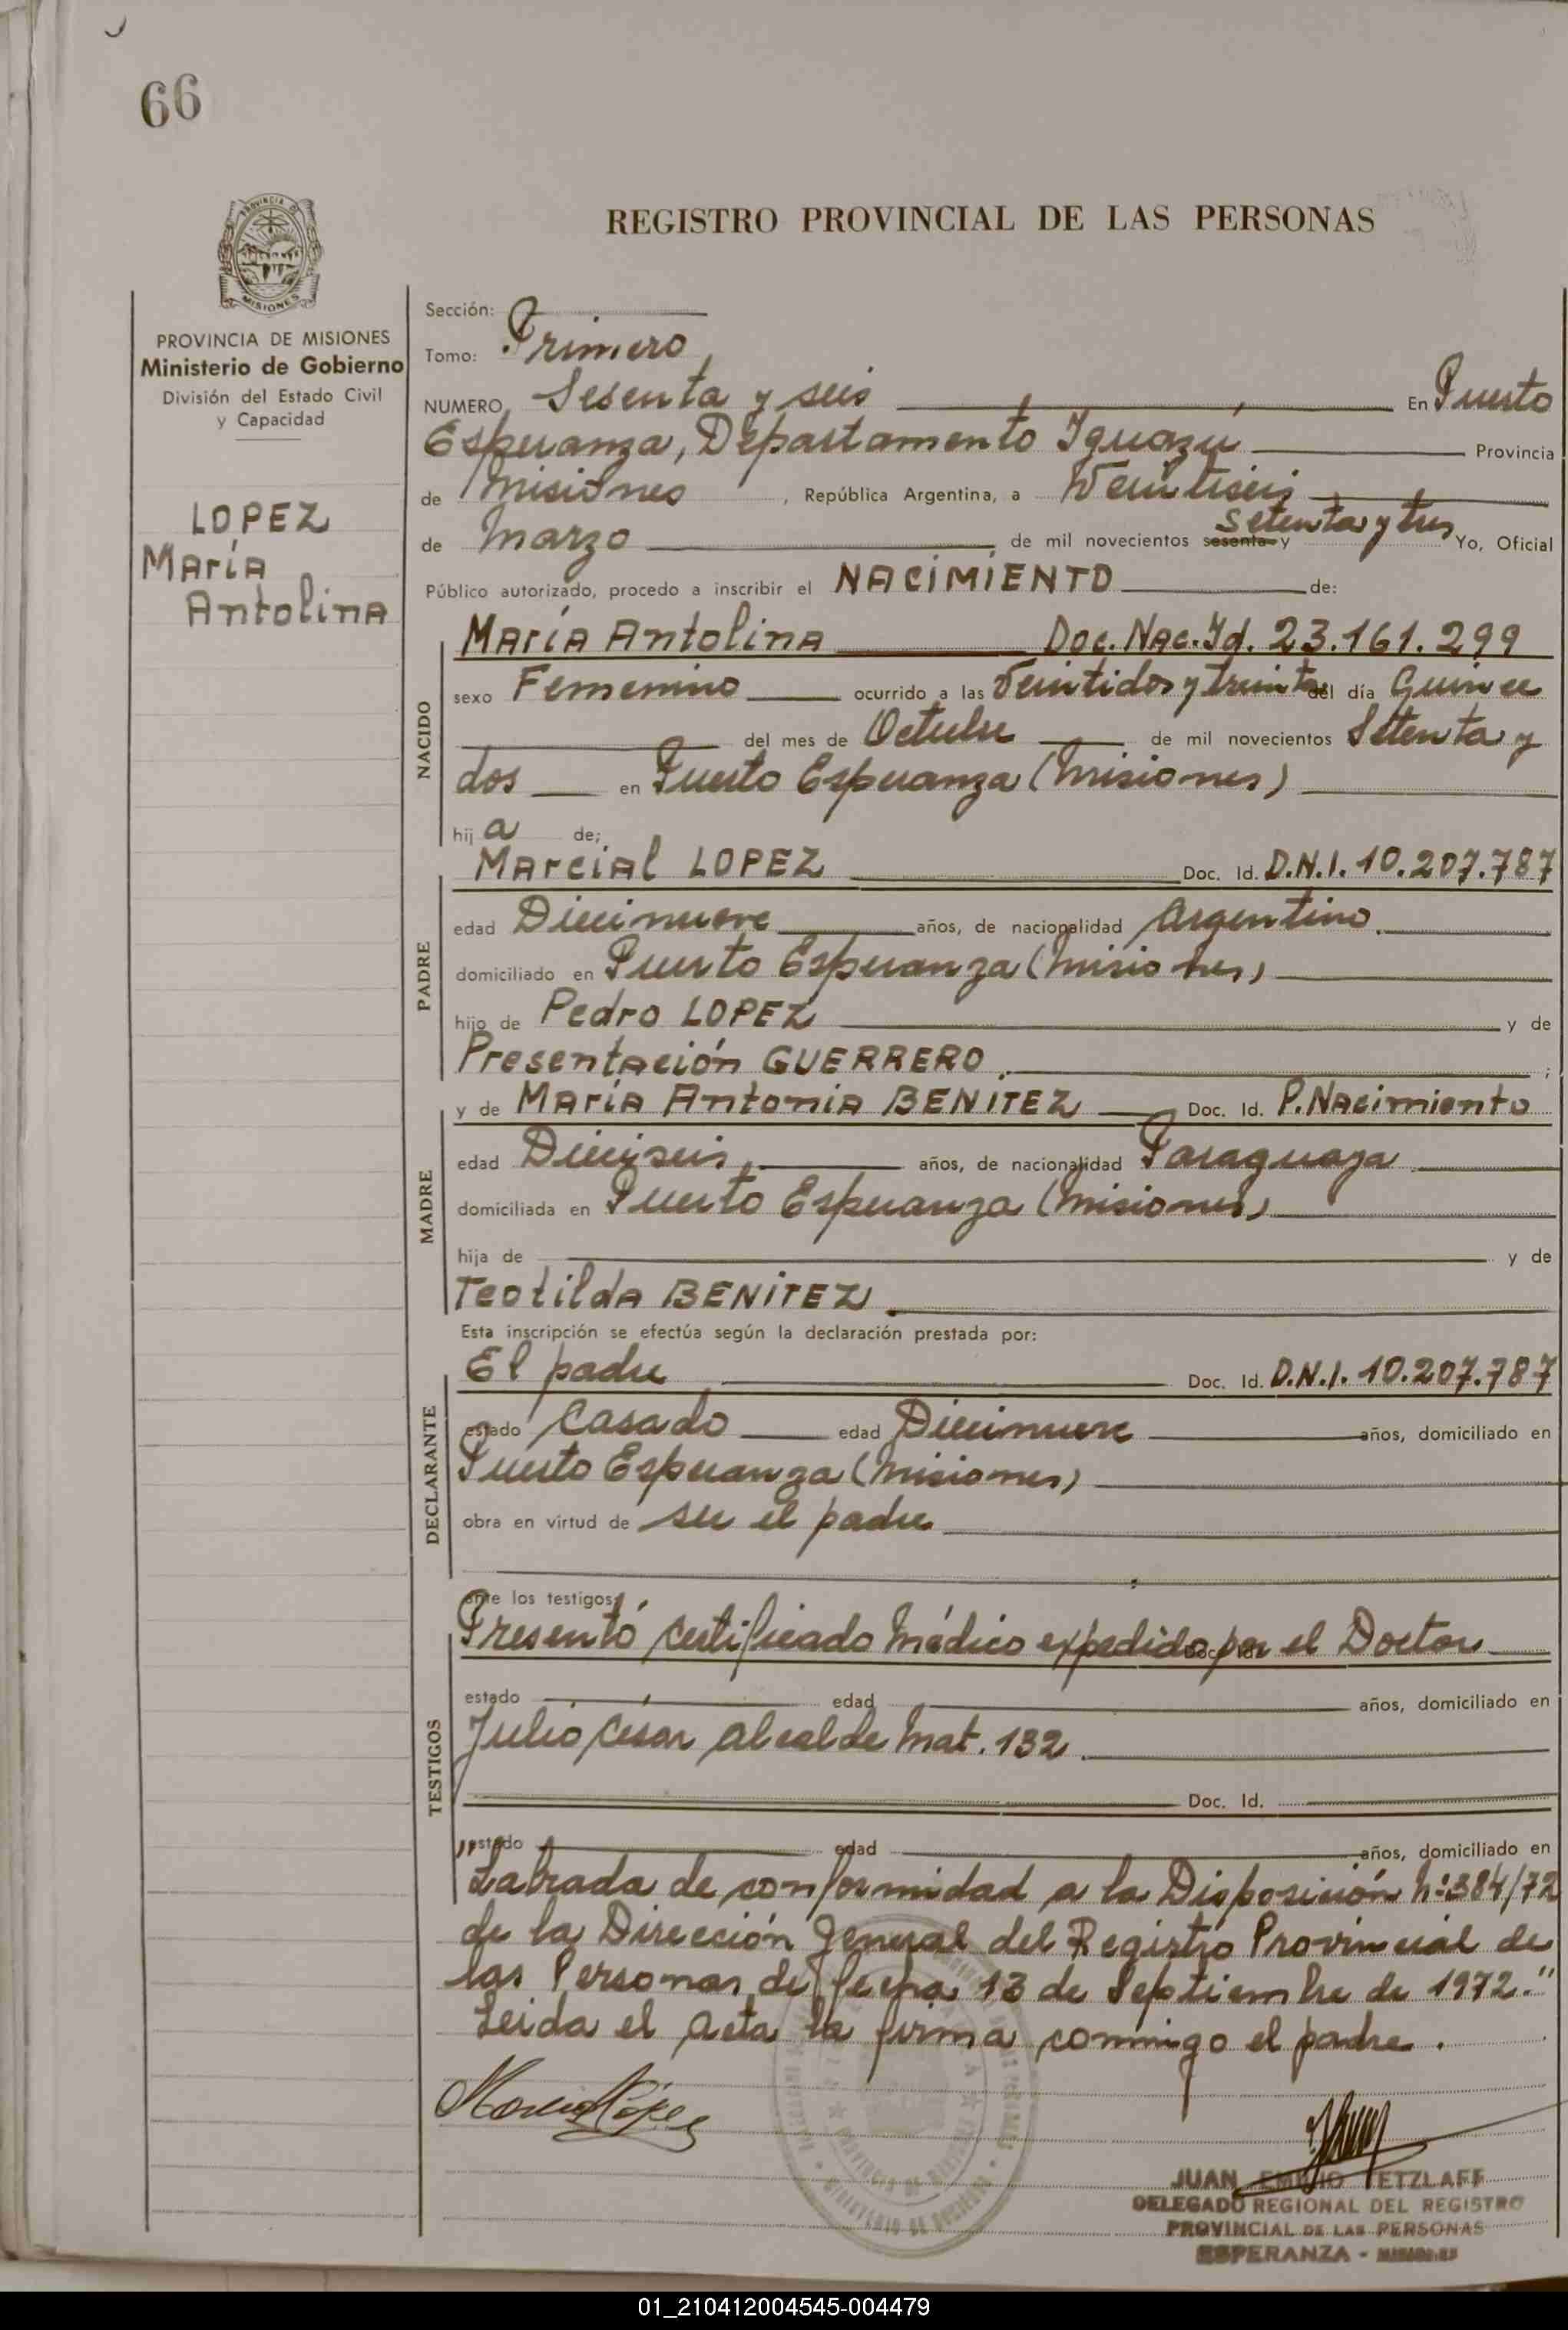 66
PROVINCIA DE
MISIONES
REGISTRO PROVINCIAL DE LAS PERSONAS
PROVINCIA DE MISIONES
Ministerio de Gobierno
División del Estado Civil
y Capacidad
LOPEZ
María
Antolina
Sección:
Tomo: Primero
NUMERO Sesenta y seis En Puerto
Esperanza, Departamento Iguazú Provincia
de Misiones, República Argentina, a Veintiseis
de Marzo de mil novecientos sesenta y setenta y tres Yo, Oficial
Público autorizado, procedo a inscribir el NACIMIENTO de:
NACIDO
María Antolina Doc. Nac. Id. 23.161.299
sexo Femenino ocurrido a las Veintidos y treinta del día Quince
del mes de Octubre de mil novecientos Setenta y
dos en Puerto Esperanza (Misiones)
hij a de;
PADRE
Marcial LOPEZ Doc. Id. D.N.I. 10.207.787
edad Diecinueve años, de nacionalidad Argentino
domiciliado en Puerto Esperanza (Misiones)
hijo de Pedro LOPEZ y de
Presentación GUERRERO ;
MADRE
y de María Antonia BENITEZ Doc. Id. P. Nacimiento
edad Dieciseis años, de nacionalidad Paraguaya
domiciliada en Puerto Esperanza (Misiones)
hija de y de
Teotilda BENITEZ
Esta inscripción se efectúa según la declaración prestada por:
DECLARANTE
El padre Doc. Id. D.N.I. 10.207.787
estado Casado edad Diecinueve años, domiciliado en
Puerto Esperanza (Misiones)
obra en virtud de ser el padre
ante los testigos:
TESTIGOS
Presentó certificado Médico expedido por el Doctor
estado edad años, domiciliado en
Julio César Alcalde Mat. 132
Doc. Id.
estado edad años, domiciliado en
"Labrada de conformidad a la Disposición Nº 384/72
de la Dirección General del Registro Provincial de
las Personas de fecha 13 de Septiembre de 1972."
Leida el Acta la firma conmigo el padre.
JUAN EMILIO TETZLAFF
DELEGADO REGIONAL DEL REGISTRO
PROVINCIAL DE LAS PERSONAS
ESPERANZA - MISIONES
01_210412004545-004479